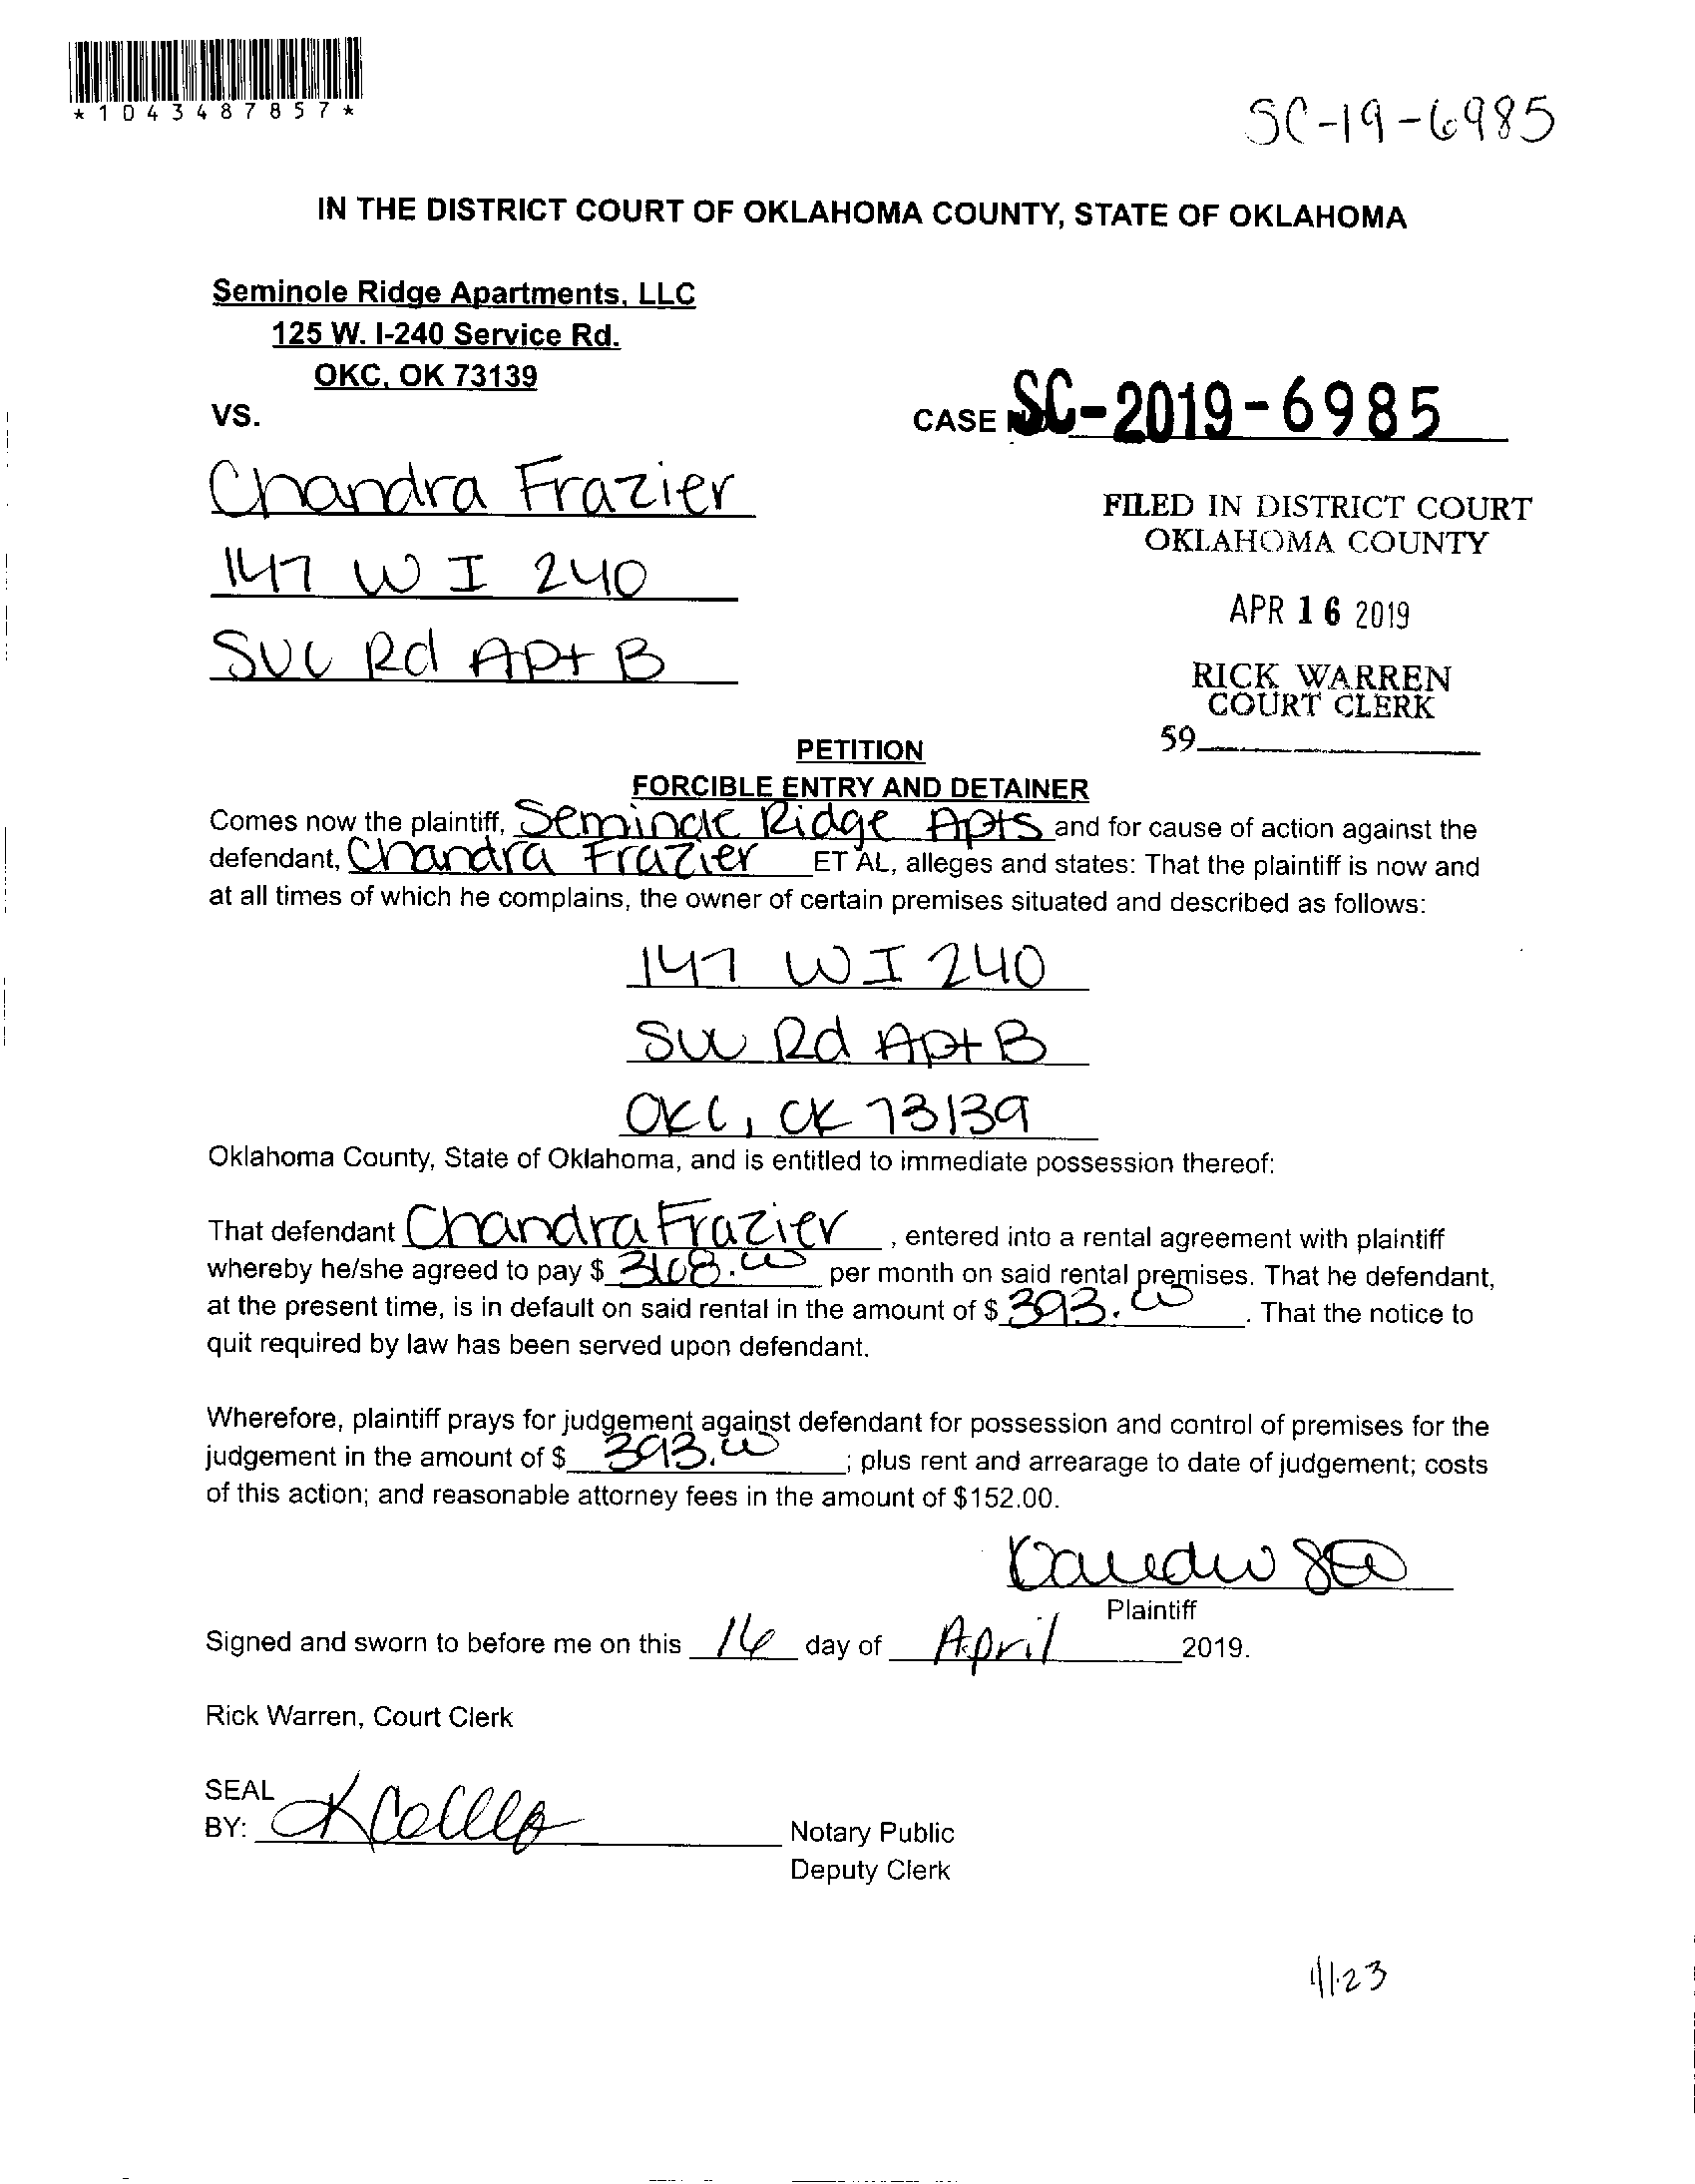 *1043487857*
SC-19-6985
IN THE DISTRICT COURT OF OKLAHOMA COUNTY, STATE OF OKLAHOMA
Seminole Ridge Apartments, LLC
125 W. I-240 Service Rd.
OKC, OK 73139
VS.
CASE SC-2019-6985
Chandra Frazier
147 W I 240
SVC Rd Apt B
FILED IN DISTRICT COURT
OKLAHOMA COUNTY
APR 16 2019
RICK WARREN
COURT CLERK
59
PETITION
FORCIBLE ENTRY AND DETAINER
Comes now the plaintiff, Seminole Ridge Apts and for cause of action against the
defendant, Chandra Frazier ET AL, alleges and states: That the plaintiff is now and
at all times of which he complains, the owner of certain premises situated and described as follows:
147 W I 240
SVC Rd Apt B
OKC, OK 73139
Oklahoma County, State of Oklahoma, and is entitled to immediate possession thereof:
That defendant Chandra Frazier, entered into a rental agreement with plaintiff
whereby he/she agreed to pay $ per month on said rental premises. That he defendant,
at the present time, is in default on said rental in the amount of $ 393.00. That the notice to
quit required by law has been served upon defendant.
Wherefore, plaintiff prays for judgement against defendant for possession and control of premises for the
judgement in the amount of $ 393.00; plus rent and arrearage to date of judgement; costs
of this action; and reasonable attorney fees in the amount of $152.00.
Plaintiff
Signed and sworn to before me on this 16 day of April 2019.
Rick Warren, Court Clerk
SEAL
BY:
Notary Public
Deputy Clerk